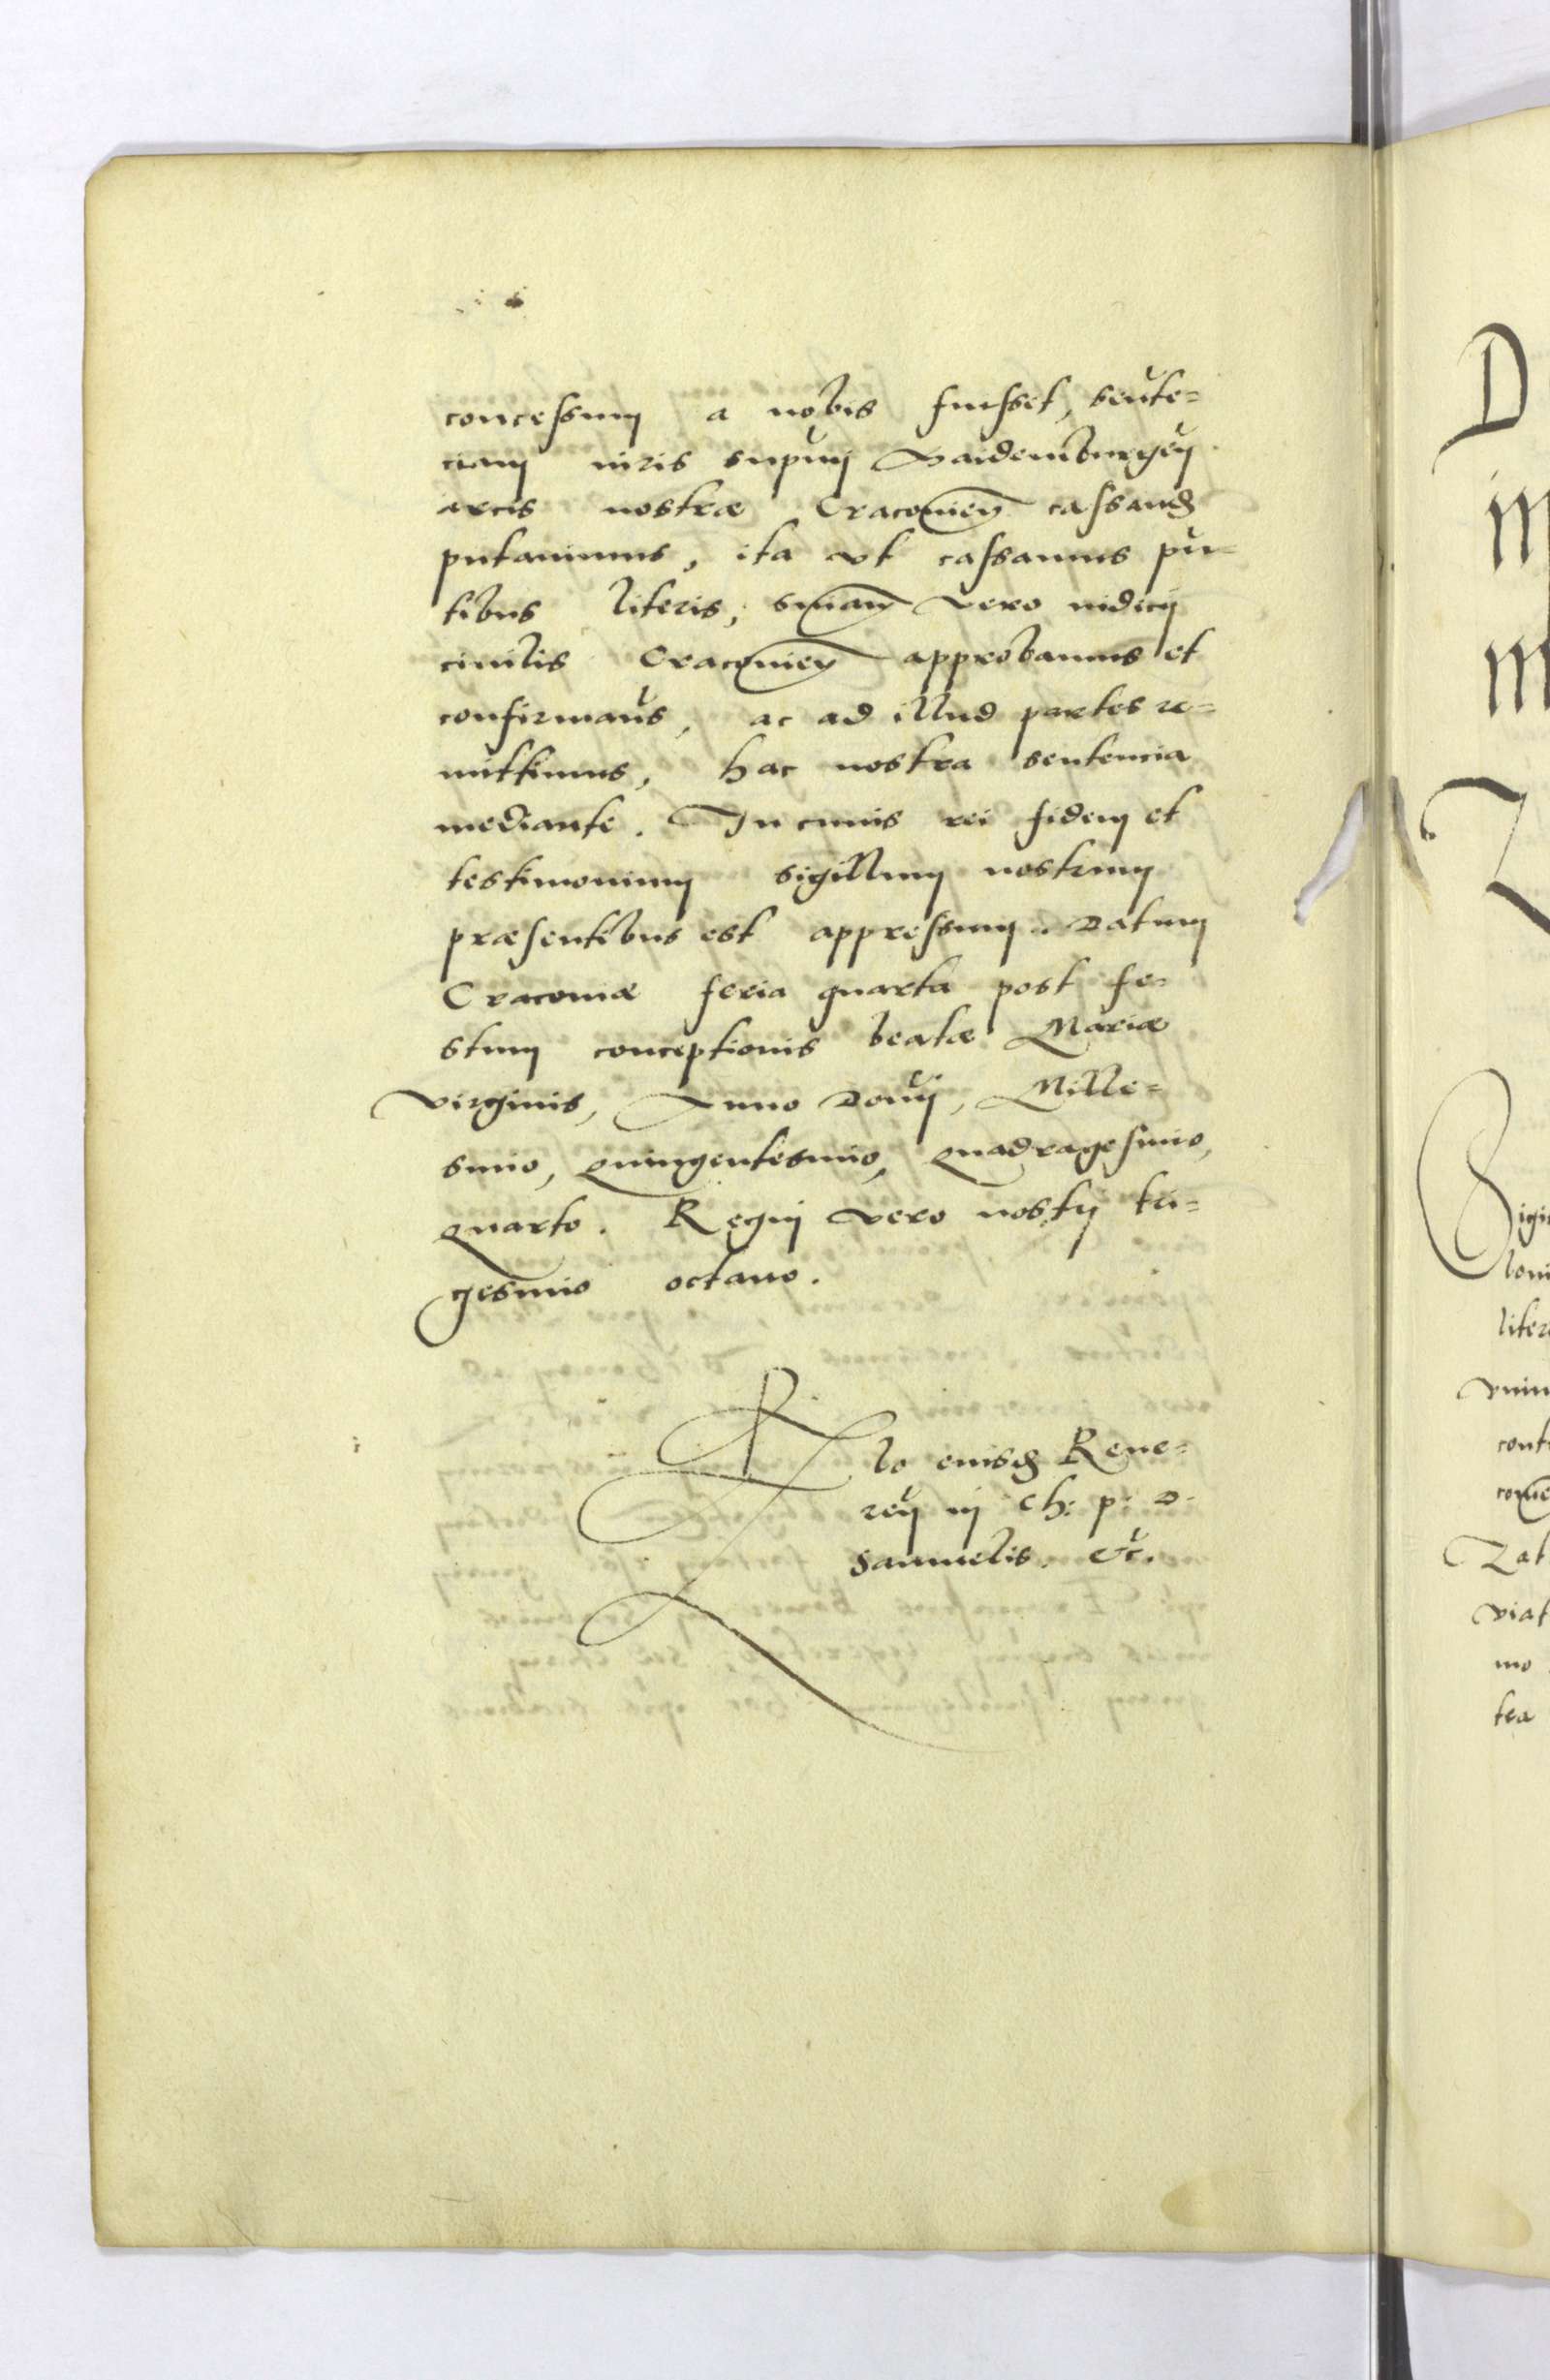 concessum a nobis fuisset, senten=
ciam iuris supmi Maidemburgen
arcis nostræ Cracovien cassand
putavimus, ita vt cassamus pñ=
tibus literis, sniam vero iudicij
civilis Cracovien approbamus et
confirmamus, ac ad illud partes re=
mittimus, hac nostra sentencia
mediante. In cuius rei fidem et
testimonium sigillum nostrum
præsentibus est appressum. Datum
Cracoviæ feria quarta post fe=
stum conceptionis beatæ Mariæ
virginis, Anno Domi, Mille=
simo, quingentesimo, quadragesimo,
quarto. Regni vero nostri tri=
gesimo octavo.
lo eiusd Reve=
ren in Ch: p: D.
Samuelis. etc.
D
Sigi
loni
liter
vniu
cont
Zat
viat
mo
tea